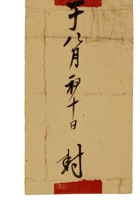 于八月初十日封